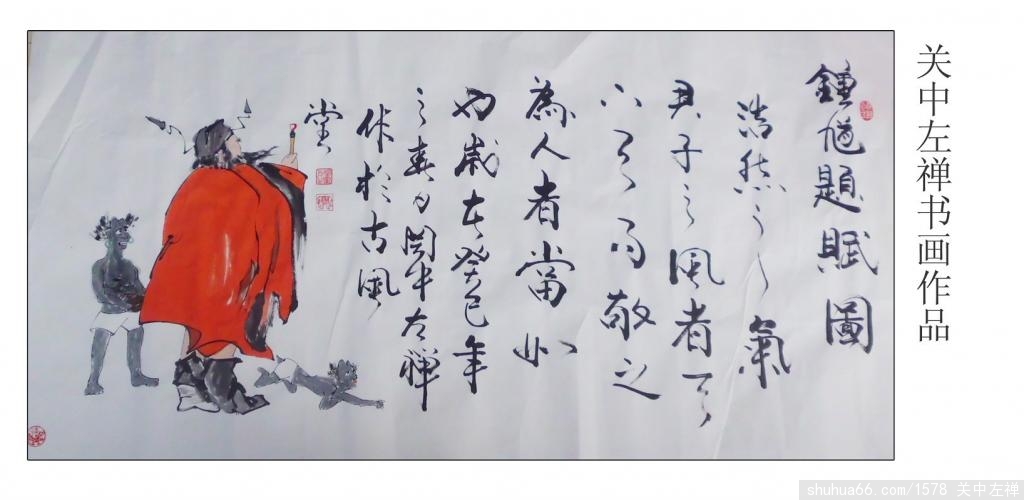 关中左禅书画作品
鍾馗題賦圖
浩然之氣
君子之風者
下而敬之
為人者當如
也歲在癸巳年
之春月関中左禅
作於古風
堂
shuhua66.com/1578 关中左禅